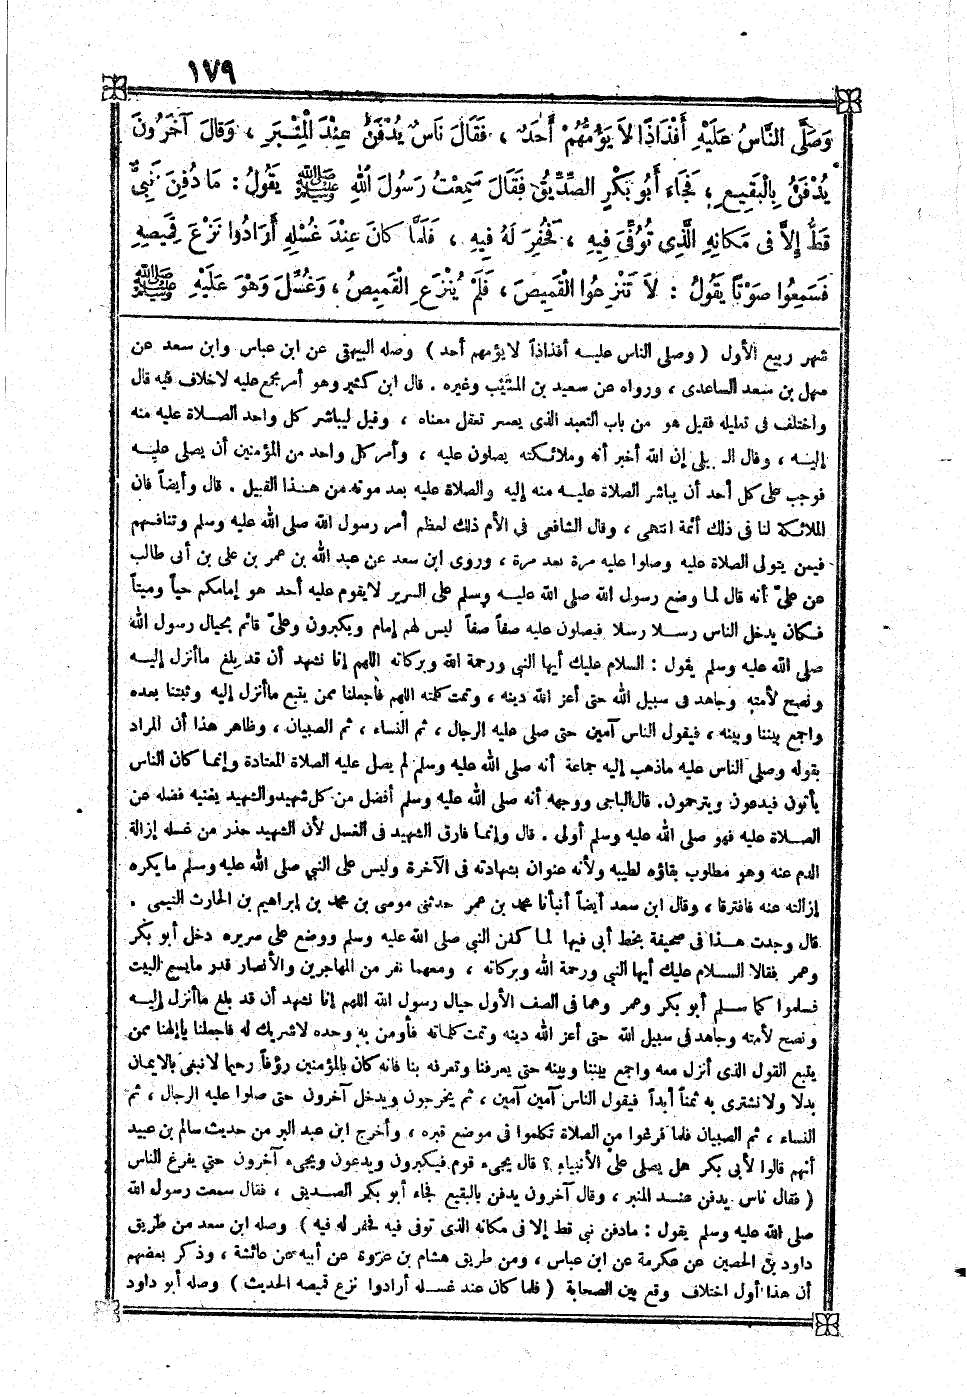 ١٧٩
وَصَلَّى النَّاسُ عَلَيْهِ أَفْذَاذًا لاَ يَؤُمُّهُمْ أَحَدٌ ، فَقَالَ نَاسٌ يُدْفَنُ عِنْدَ الْمِنْبَرِ ، وَقَالَ آخَرُونَ
يُدْفَنُ بِالْبَقِيعِ ، فَجَاءَ أَبُو بَكْرٍ الصِّدِّيقُ فَقَالَ سَمِعْتُ رَسُولَ اللهِ ﷺ يَقُولُ : مَا دُفِنَ نَبِيٌّ
قَطُّ إِلاَّ فِى مَكَانِهِ الَّذِى تُوُفِّىَ فِيهِ ، فَحُفِرَ لَهُ فِيهِ ، فَلَمَّا كَانَ عِنْدَ غُسْلِهِ أَرَادُوا نَزْعَ قَمِيصِهِ
فَسَمِعُوا صَوْتًا يَقُولُ : لاَ تَنْزِعُوا الْقَمِيصَ ، فَلَمْ يُنْزَعِ الْقَمِيصُ ، وَغُسِّلَ وَهُوَ عَلَيْهِ ﷺ
شهر ربيع الأول ( وصلى الناس عليه أفذاذاً لا يؤمهم أحد ) وصله البيهقى عن ابن عباس وابن سعد عن
سهل بن سعد الساعدى ، ورواه عن سعيد بن المسَيّب وغيره . قال ابن كثير وهو أمر مجمع عليه لا خلاف فيه قال
واختلف فى تعليله فقيل هو من باب التعبد الذى يعسر تعقل معناه ، وقيل ليباشر كل واحد الصلاة عليه منه
إليه ، وقال الـ يلى إن الله أخبر أنه وملائكته يصلون عليه ، وأمر كل واحد من المؤمنين أن يصلى عليه
فوجب على كل أحد أن يباشر الصلاة عليه منه إليه والصلاة عليه بعد موته من هذا القبيل . قال وأيضاً فان
الملائكة لنا فى ذلك أئمة انتهى ، وقال الشافعى فى الأم ذلك لعظم أمر رسول الله صلى الله عليه وسلم وتنافسهم
فيمن يتولى الصلاة عليه وصلوا عليه مرة بعد مرة ، وروى ابن سعد عن عبد الله بن عمر بن على بن أبى طالب
عن علىّ أنه قال لما وضع رسول الله صلى الله عليه وسلم على السرير لا يقوم عليه أحد هو إمامكم حياً وميتاً
فكان يدخل الناس رسلا رسلا فيصلون عليه صفاً صفاً ليس لهم إمام ويكبرون وعلىّ قائم بحيال رسول الله
صلى الله عليه وسلم يقول : السلام عليك أيها النبى ورحمة الله وبركاته اللهم إنا نشهد أن قد بلغ ما أنزل إليه
ونصح لأمته وجاهد فى سبيل الله حتى أعز الله دينه ، وتمت كلمته اللهم فأجعلنا ممن يتبع ما أنزل إليه وثبتنا بعده
واجمع بيننا وبينه ، فيقول الناس آمين حتى صلى عليه الرجال ، ثم النساء ، ثم الصبيان ، وظاهر هذا أن المراد
بقوله وصلى الناس عليه ماذهب إليه جماعة أنه صلى الله عليه وسلم لم يصل عليه الصلاة المعتادة وإنما كان الناس
يأتون فيدعون ويترحمون. قال الباجى ووجهه أنه صلى الله عليه وسلم أفضل من كل شهيد والشهيد يغنيه فضله عن
الصلاة عليه فهو صلى الله عليه وسلم أولى . قال وإنما فارق الشهيد فى الغسل لأن الشهيد حذر من غسله إزالة
الدم عنه وهو مطلوب بقاؤه لطيبه ولأنه عنوان بشهادته فى الآخرة وليس على النبي صلى الله عليه وسلم ما يكره
إزالته عنه فافترقا ، وقال ابن سعد أيضاً أنبأنا محمد بن عمر حدثنى موسى بن محمد بن إبراهيم بن الحارث التيمى .
قال وجدت هذا فى صحيفة بخط أبى فيها لما كفن النبى صلى الله عليه وسلم ووضع على سريره دخل أبو بكر
وعمر فقالا السلام عليك أيها النبى ورحمة الله وبركاته ، ومعهما نفر من المهاجرين والأنصار قدر ما يسع البيت
فسلموا كما سلم أبو بكر وعمر وهما فى الصف الأول حيال رسول الله اللهم إنا نشهد أن قد بلغ ما أنزل إليه
ونصح لأمته وجاهد فى سبيل الله حتى أعز الله دينه وتمت كلماته فأومن به وحده لا شريك له فاجعلنا يا إلهنا ممن
يتبع القول الذى أنزل معه واجمع بيننا وبينه حتى يعرفنا وتعرفه بنا فانه كان بالمؤمنين رؤفاً رحيما لا نبغى بالايمان
بدلا ولا نشترى به ثمناً أبداً فيقول الناس آمين آمين ، ثم يخرجون ويدخل آخرون حتى صلوا عليه الرجال ، ثم
النساء ، ثم الصبيان فلما فرغوا من الصلاة تكلموا فى موضع قبره ، وأخرج ابن عبد البر من حديث سالم بن عبيد
أنهم قالوا لأبى بكر هل يصلى على الأنبياء ؟ قال يجىء قوم فيكبرون ويدعون ويجىء آخرون حتى يفرغ الناس
( فقال ناس يدفن عند المنبر ، وقال آخرون يدفن بالبقيع فجاء أبو بكر الصديق ، فقال سمعت رسول الله
صلى الله عليه وسلم يقول : مادفن نبى قط إلا فى مكانه الذى توفى فيه فحفر له فيه ) وصله ابن سعد من طريق
داود بن الحصين عن عكرمة عن ابن عباس ، ومن طريق هشام بن عروة عن أبيه عن عائشة ، وذكر بعضهم
أن هذا أول اختلاف وقع بين الصحابة ( فلما كان عند غسله أرادوا نزع قميصه الحديث ) وصله أبو داود